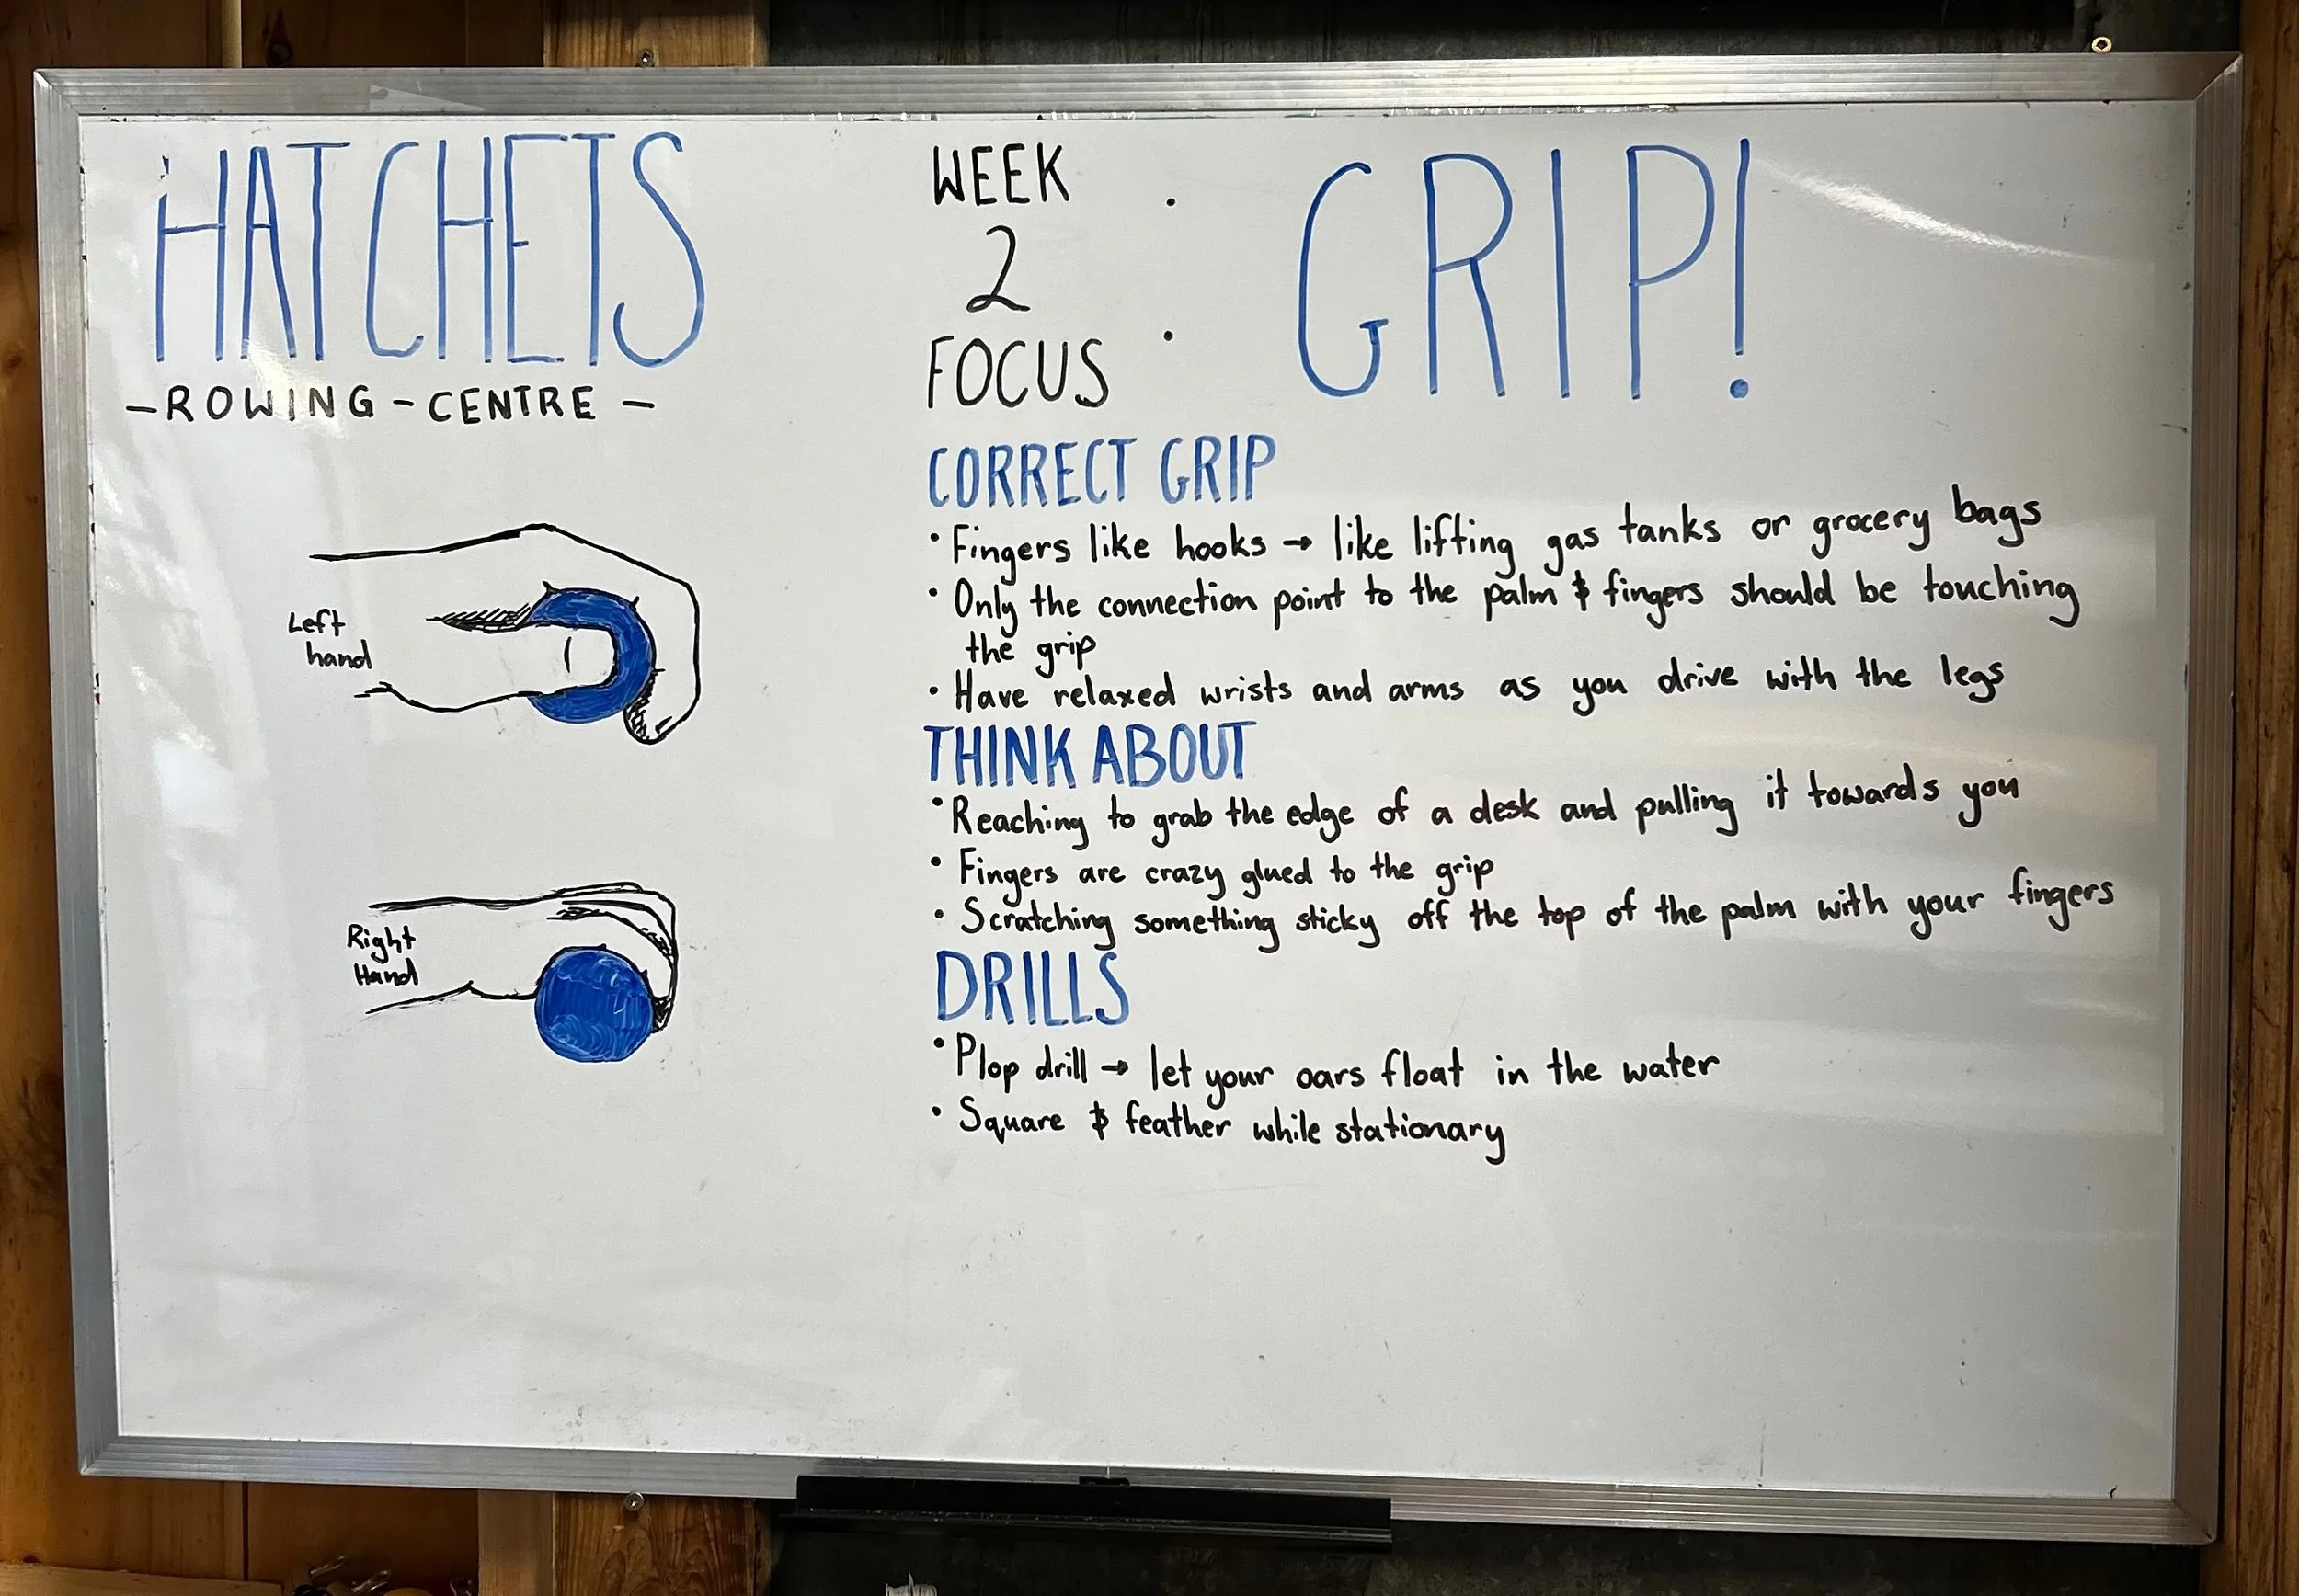 HATCHETS
-ROWING-CENTRE-
WEEK
2
FOCUS
:
GRIP!
Left
hand
Right
Hand
CORRECT GRIP
• Fingers like hooks → like lifting gas tanks or grocery bags
• Only the connection point to the palm & fingers should be touching
the grip
• Have relaxed wrists and arms as you drive with the legs
THINK ABOUT
• Reaching to grab the edge of a desk and pulling it towards you
• Fingers are crazy glued to the grip
• Scratching something sticky off the top of the palm with your fingers
DRILLS
• Plop drill → let your oars float in the water
• Square & feather while stationary